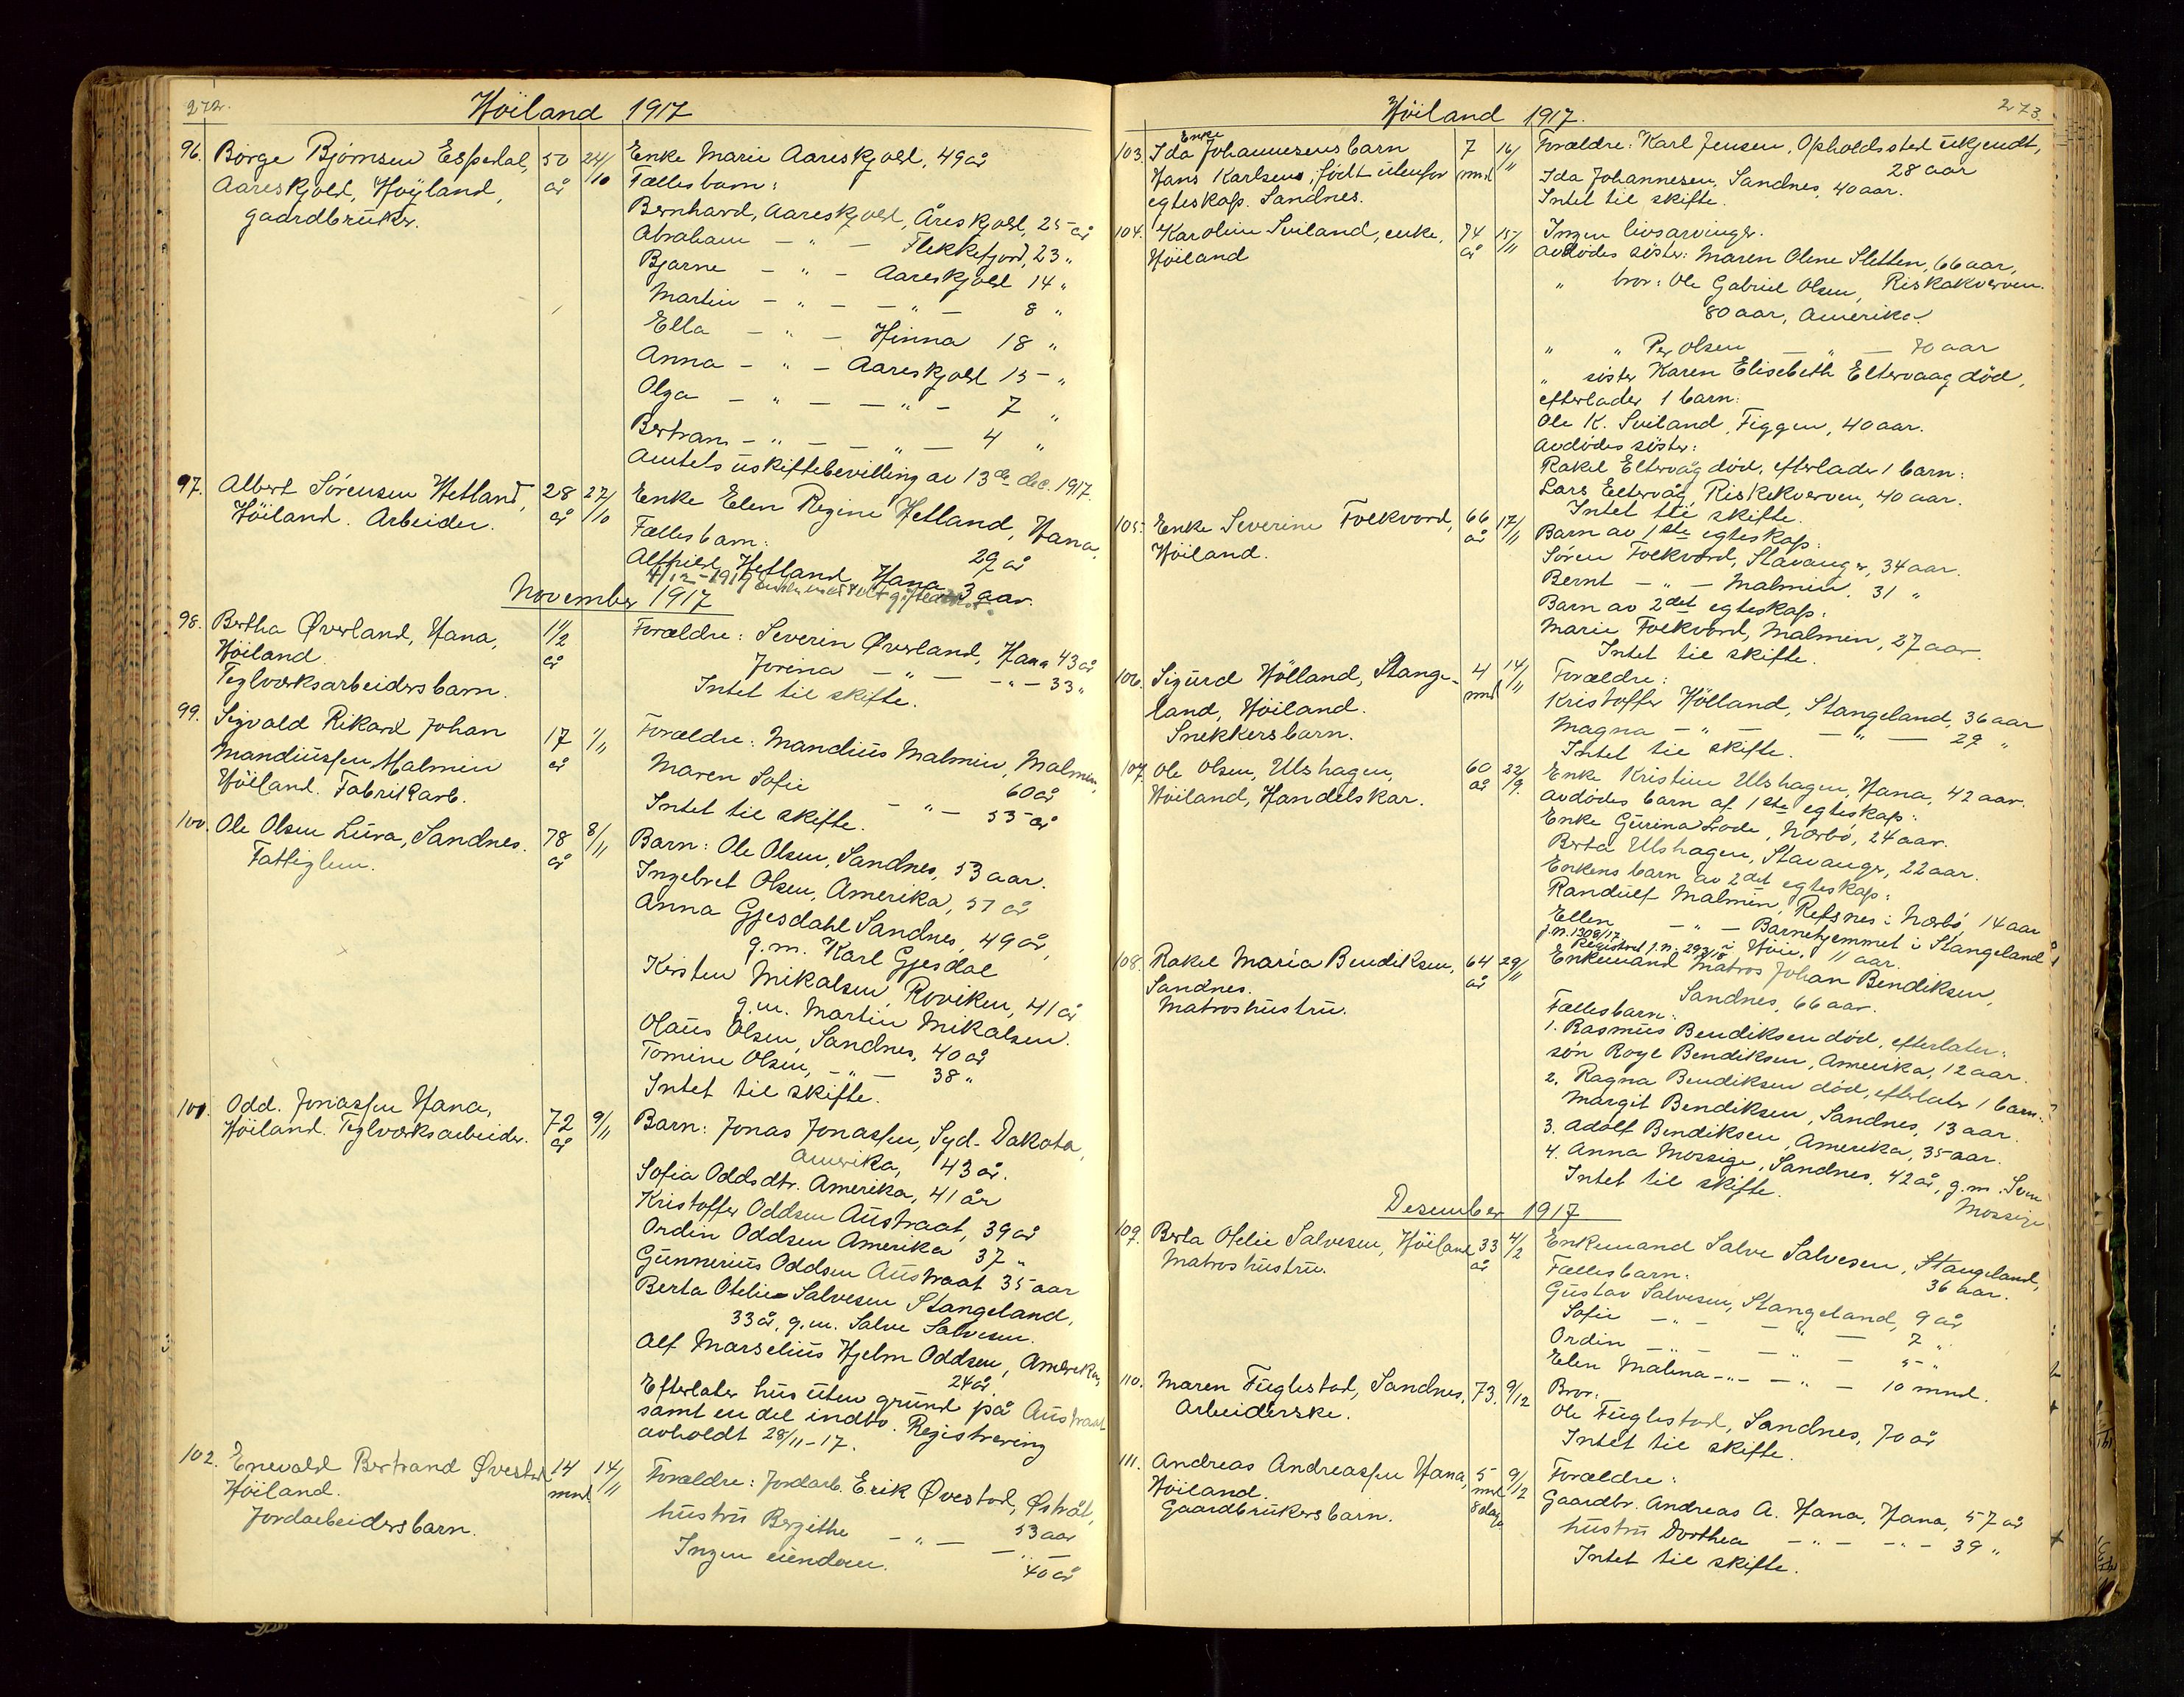 272.
Höiland 1917
96. Børge Bjørnsen Espedal, 50 24/
Aareskjold, Høyland, år 10
gaardbruker.
Enke Marie Aareskjold, 49 år
Fællesbarn:
Bernhard, Aareskjold, Åreskjold, 25 år
Abraham — " — Flekkefjord, 23 "
Bjarne — " — Aareskjold 14 "
Martin — " — — " — 8 "
Ella — " — Hinna 18 "
Anna — " — Aareskjold 15 "
Olga — " — — " — 7 "
Bertram — " — — " — 4 "
Amtets uskiftebevilling av 13de dec. 1917.
97. Albert Sørensen Hetland, 28 27/
Höiland. Arbeider. år 10
Enke Elen Regine Hetland, Hana,
29 år
Fællesbarn:
Alfhild Hetland Hana 3 aar.
4/12-1919
November 1917
98. Bertha Øverland, Hana, 1 1/2
Höiland år
Teglværksarbeidersbarn.
Forældre: Severin Øverland, Hana 43 år
Jorina — " — — " — 33 "
Intet til skifte.
99. Sigvald Rikard Johan 17 1/11
Mandiussen Malmin år
Höiland. Fabrikarb.
Forældre: Mandius Malmin, Malmin,
60 år
Maren Sofie — " — 55 år
Intet til skifte.
100. Ole Olsen Lura, Sandnes. 78 8/11
Fattiglem. år
Barn: Ole Olsen, Sandnes, 53 aar.
Ingebret Olsen, Amerika, 51 år
Anna Gjesdahl Sandnes, 49 år,
g.m. Karl Gjesdal
Kirsten Mikalsen, Roviken, 41 år
g.m. Martin Mikalsen.
Olaus Olsen, Sandnes, 40 år
Tomine Olsen, — " — 38 "
Intet til skifte.
101. Odd. Jonassen Hana, 72 9/11
Höiland. Teglværksarbeider. år
Barn: Jonas Jonassen, Syd-Dakota,
Amerika, 43 år.
Sofia Oddsdtr. Amerika, 41 år
Kristoffer Oddsen Austraat, 39 år
Ordin Oddsen Amerika 37 "
Gunnerius Oddsen Austraat 35 aar
Berta Otelie Salvesen Stangeland,
33 år, g.m. Salve Salvesen.
Alf Marselius Hjelm Oddsen, Amerika,
24 år
Efterlater hus uten grund på Austraat
samt en del indbo. Registrering
avholdt 28/11-17.
102. Enevald Bertrand Øvestad 14 14/11
Höiland. mnd
Jordarbeidersbarn.
Forældre: Jordarb. Erik Øvestad, Østråt,
53 aar
hustru Bergithe — " — — " —
40 år
Ingen eiendom.
273.
Höiland 1917.
Enke
103. Ida Johannesens barn 7 16/11
Hans Karlsen, født utenfor mnd
egteskap. Sandnes.
Forældre: Karl Jensen, Opholdssted ukjendt,
28 aar
Ida Johannesen, Sandnes, 40 aar.
Intet til skifte.
104. Karoline Sviland, enke, 74 15/11
Höiland år
Ingen livsarvinger.
Avdødes søster: Maren Olene Sletten, 66 aar,
" bror: Ole Gabriel Olsen, Riskakverven.
80 aar, Amerika.
" " Per Olsen — " — 70 aar
" søster Karen Elisebeth Eltervaag død,
efterlader 1 barn:
Ole K. Sviland, Figgen, 40 aar.
Avdødes søster:
Rakel Eltervåg død, efterlader 1 barn:
Lars Eltervåg, Riskekverven, 40 aar.
Intet til skifte.
105. Enke Severine Folkvord, 66 17/11
Höiland. år
Barn av 1ste egteskap:
Søren Folkvord, Stavanger, 34 aar.
Bernt — " — Malmin, 31 "
Barn av 2det egteskap:
Marie Folkvord, Malmin, 27 aar.
Intet til skifte.
106. Sigurd Hölland, Stange- 4 14/11
land, Höiland. mnd
Snekkersbarn.
Forældre:
Kristoffer Hölland, Stangeland, 36 aar
Magna — " — — " — 29 "
Intet til skifte.
107. Ole Olsen, Ulshagen, 60 22/9.
Höiland, Handelskar. år
Enke Kristine Ulshagen, Hana, 42 aar.
Avdødes barn af 1ste egteskap:
Enke Gurina Lode, Nærbø, 24 aar.
Berta Ulshagen, Stavanger, 22 aar.
Enkens barn av 2det egteskap:
Randulf Malmin, Refsnes i Nærbø, 14 aar
Ellen — " — Barnehjemmet i Stangeland
j.n. 1308/17 i Höie, 11 aar.
Registrert j.n. 293/18
108. Rakel Maria Bendiksen, 64 29/11
Sandnes. år
Matroshustru.
Enkemand Matros Johan Bendiksen,
Sandnes, 66 aar.
Fællesbarn:
1. Rasmus Bendiksen død, efterlater:
søn Roye Bendiksen, Amerika, 12 aar.
2. Ragna Bendiksen død, efterlater 1 barn:
Margit Bendiksen, Sandnes, 13 aar.
3. Adolf Bendiksen, Amerika, 35 aar.
4. Anna Mossige, Sandnes, 42 år, g.m. Sven
Mossige
Intet til skifte.
Desember 1917
109. Berta Otelie Salvesen, Höiland 33 4/2
Matroshustru. år
Enkemand Salve Salvesen, Stangeland,
36 aar.
Fællesbarn:
Gustav Salvesen, Stangeland, 9 år
Sofie — " — — " — 7 "
Ordin — " — — " — 5 "
Elen Malina — " — — " — 10 mnd.
110. Maren Fuglestad, Sandnes, 73. 9/12
Arbeiderske.
Bror:
Ole Fuglestad, Sandnes, 70 år
Intet til skifte.
111. Andreas Andreassen Hana, 5 9/12
Höiland. mnd
Gaardbrukersbarn. 8 dage
Forældre:
Gaardbr. Andreas A. Hana, Hana, 57 år
hustru Dorthea — " — — " — 39 "
Intet til skifte.